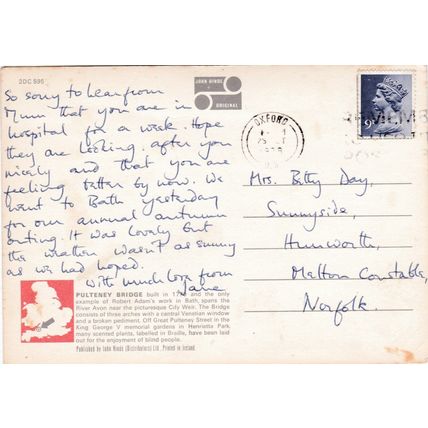 2DC 595
JOHN HINDE
ORIGINAL
So sorry to hear from
Mum that you are in
hospital for a week. Hope
they are looking after you
nicely and that you are
feeling better by now. We
went to Bath yesterday
for our annual autumn
outing. It was lovely but
the weather wasn't as sunny
as we had hoped.
With much love from
Jane
PULTENEY BRIDGE built in and the only
example of Robert Adam's work in Bath, spans the
River Avon near the picturesque City Weir. The Bridge
consists of three arches with a central Venetian window
and a broken pediment. Off Great Pulteney Street in the
King George V memorial gardens in Henrietta Park,
many scented plants, labelled in Braille, have been laid
out for the enjoyment of blind people.
Published by John Hinde (Distributors) Ltd. Printed in Ireland.
OXFORD
9
Mrs. Betty Day,
Sunnyside,
Hunworth,
Melton Constable,
Norfolk.